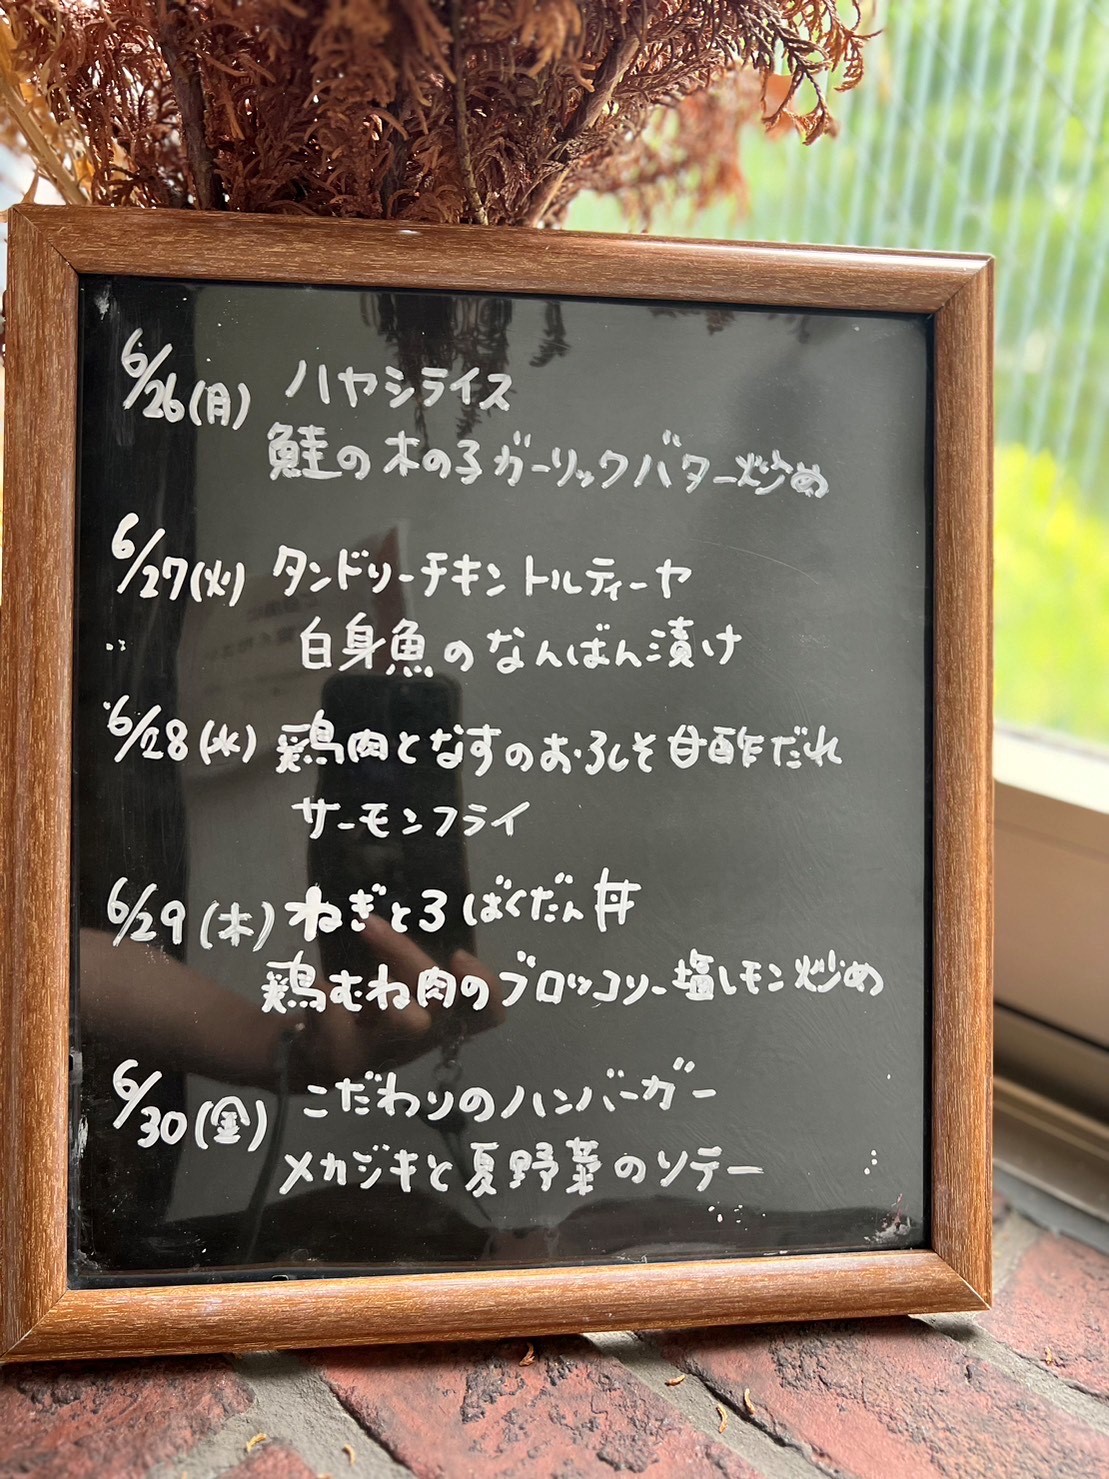 6/26(月) ハヤシライス
鮭の木の子ガーリックバター炒め
6/27(火) タンドリーチキントルティーヤ
白身魚のなんばん漬け
6/28(水) 鶏肉となすのおろしそ甘酢だれ
サーモンフライ
6/29(木) ねぎとろばくだん丼
鶏むね肉のブロッコリー塩レモン炒め
6/30(金) こだわりのハンバーガー
メカジキと夏野菜のソテー